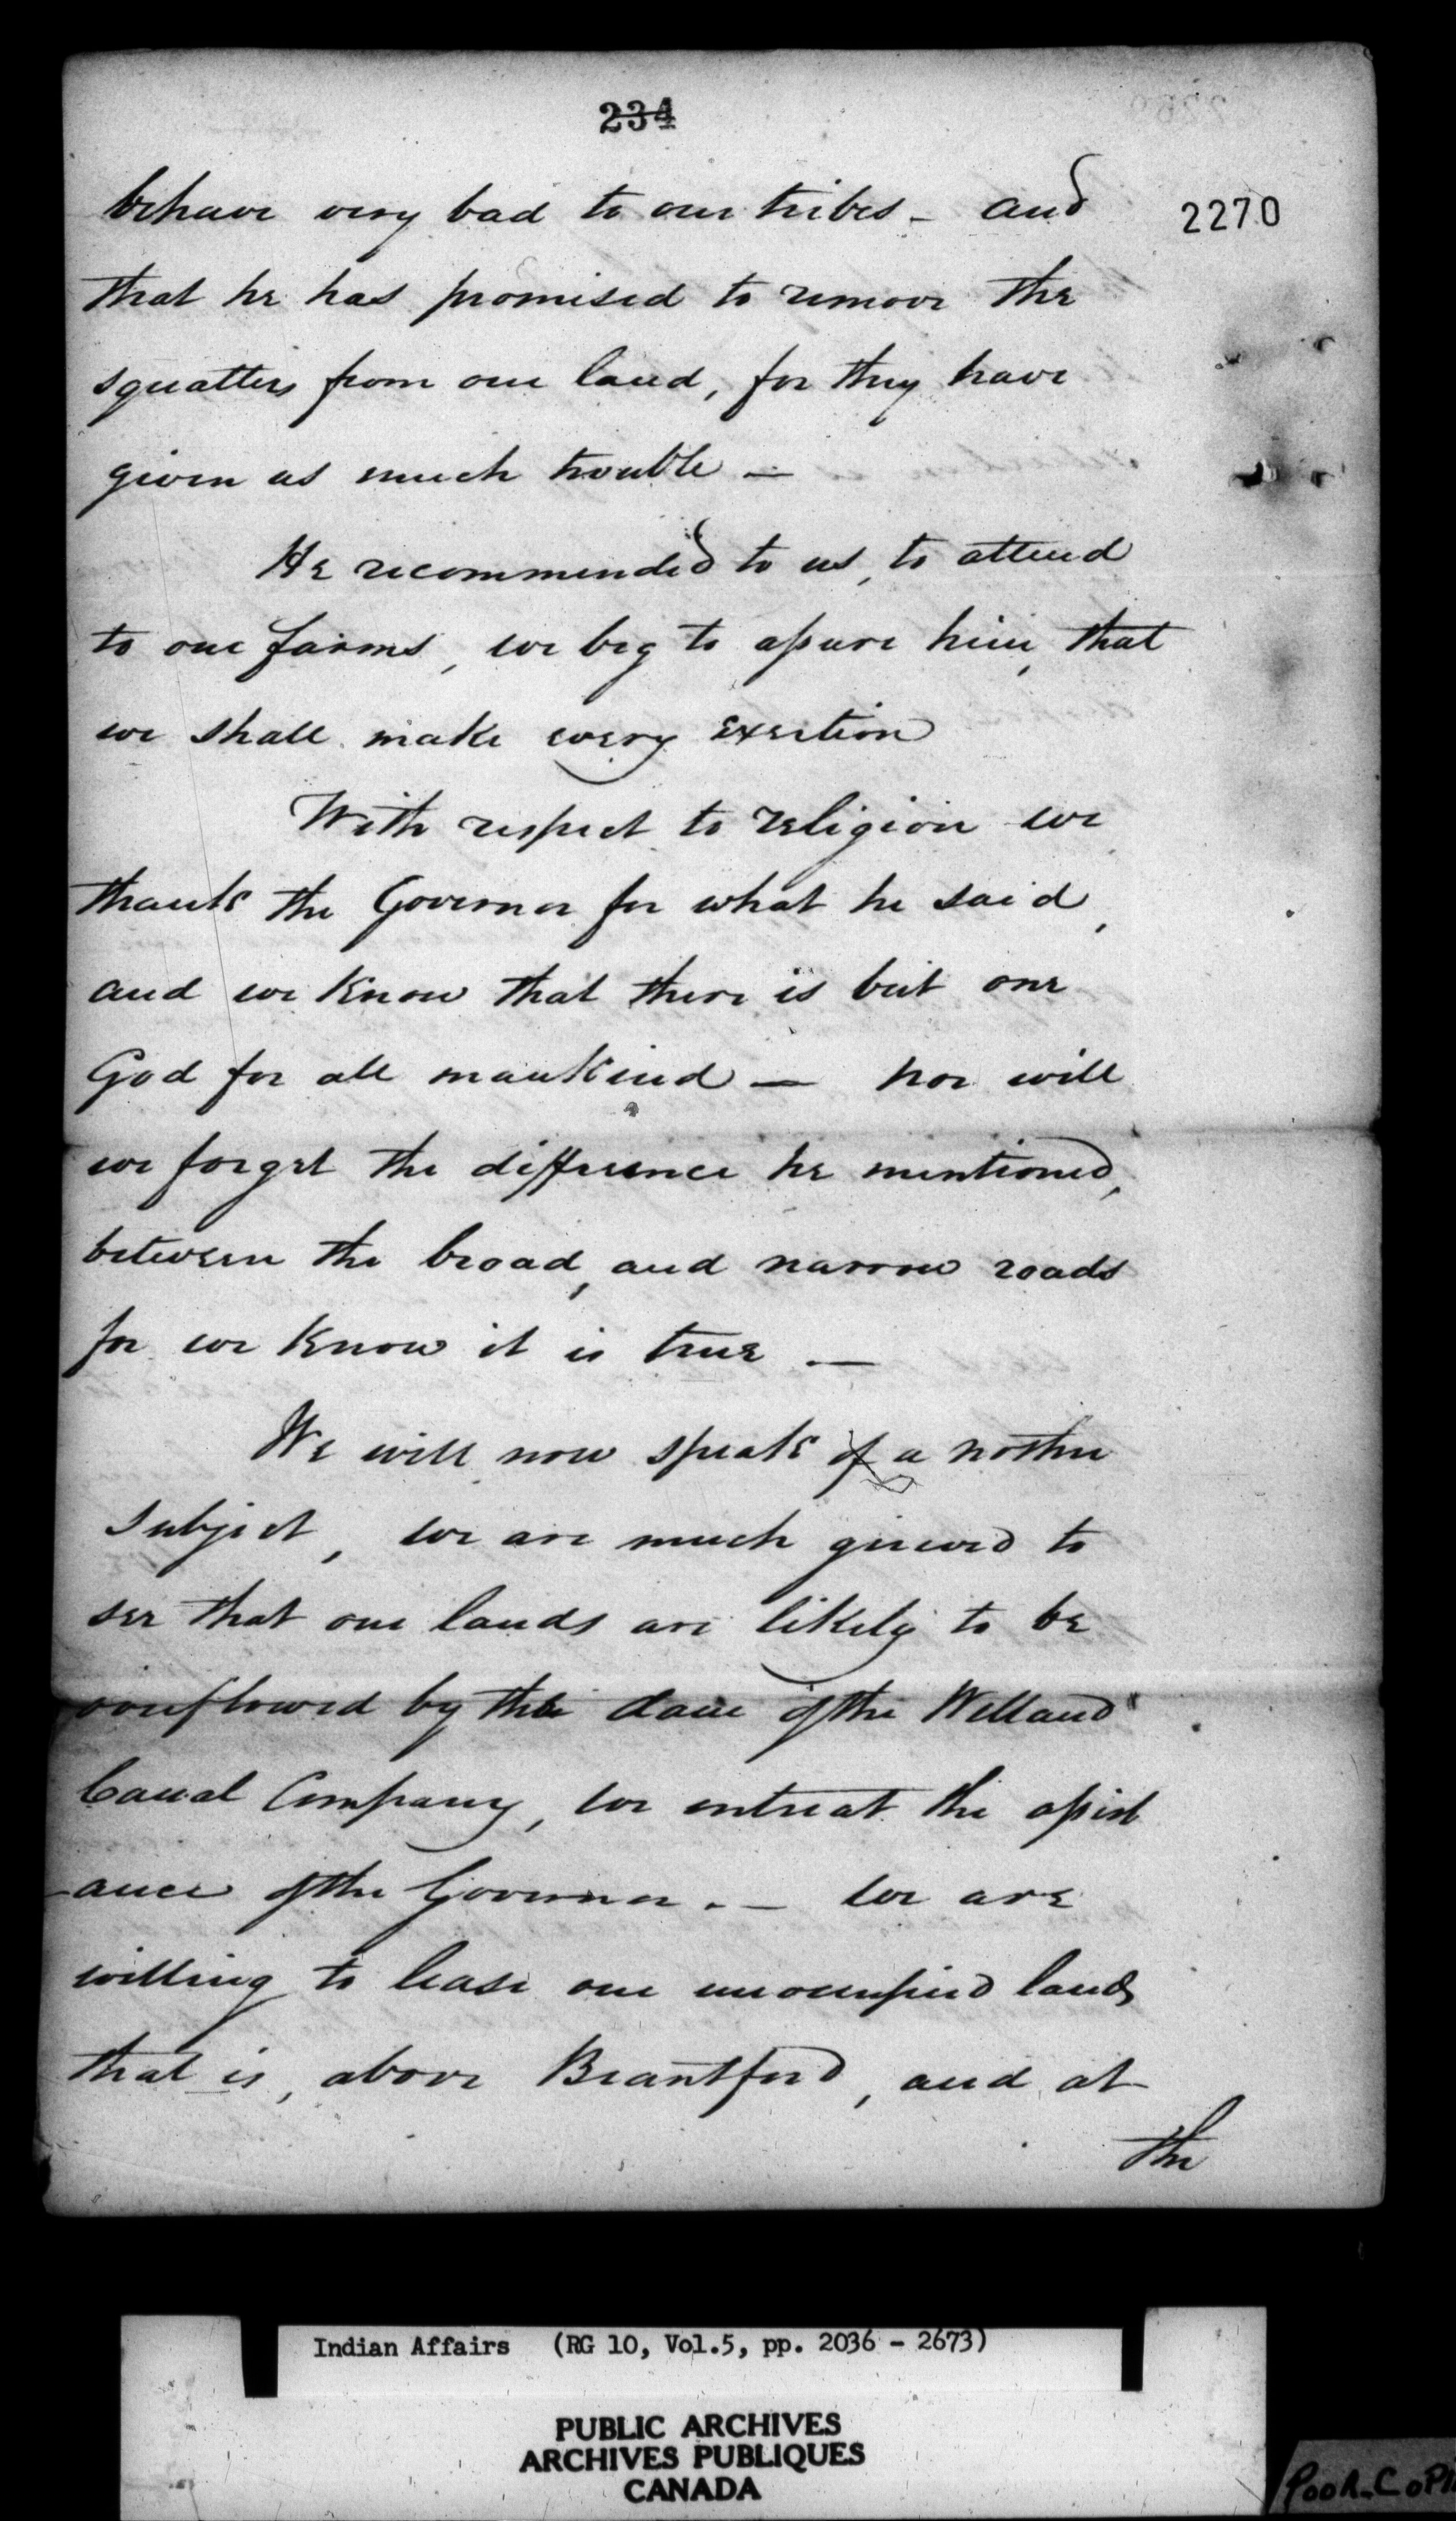 234
2270
behave very bad to our tribes - and
that he has promised to remove the
squatters from our land, for they have
given us much trouble —
He recommended to us, to attend
to our farms, we beg to assure him, that
we shall make every exertion
With respect to religion we
thank the Governor for what he said,
and we know that there is but one
God for all mankind — nor will
we forget the difference he mentioned,
between the broad, and narrow roads
for we know it is true —
We will now speak of a nother
subject, we are much grieved to
see that our lands are likely to be
overflowed by the dam of the Welland
Canal Company, we entreat the assist
-ance of the Governor. — We are
willing to lease our unoccupied lands
that is, above Brantford, and at
the
Indian Affairs (RG 10, Vol.5, pp. 2036 - 2673)
PUBLIC ARCHIVES
ARCHIVES PUBLIQUES
CANADA